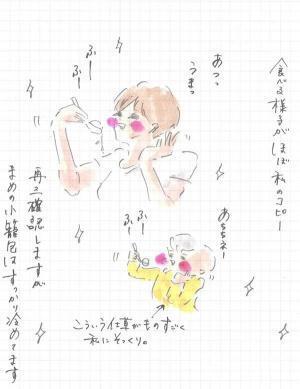 食べる様子がほぼ私のコピー
あつっ
うまっ
ふー
ふー
あちちー
ふー
ふー
こういう仕草がものすごく
私にそっくり。
再三確認しますが
まめの小籠包はすっかり冷めてます